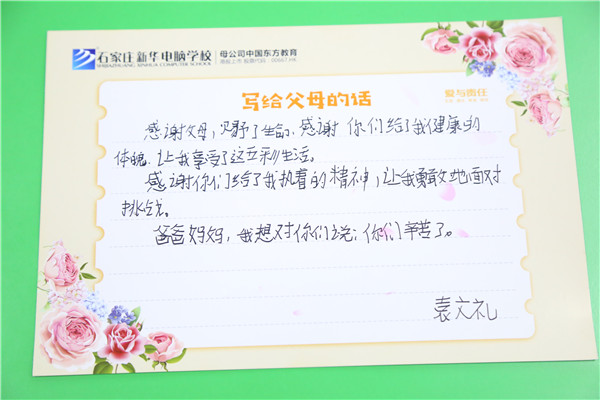 石家庄新华电脑学校
SHIJIAZHUANG XINHUA COMPUTER SCHOOL
母公司中国东方教育
港股上市 股票代码：00667.HK
爱与责任
写给父母的话
感谢父母，赐予了生命，感谢你们给了我健康的
体魄，让我享受了这五彩生活。
感谢你们给了我执着的精神，让我勇敢地面对
挑战。
爸爸妈妈，我想对你们说：你们辛苦了。
袁文礼